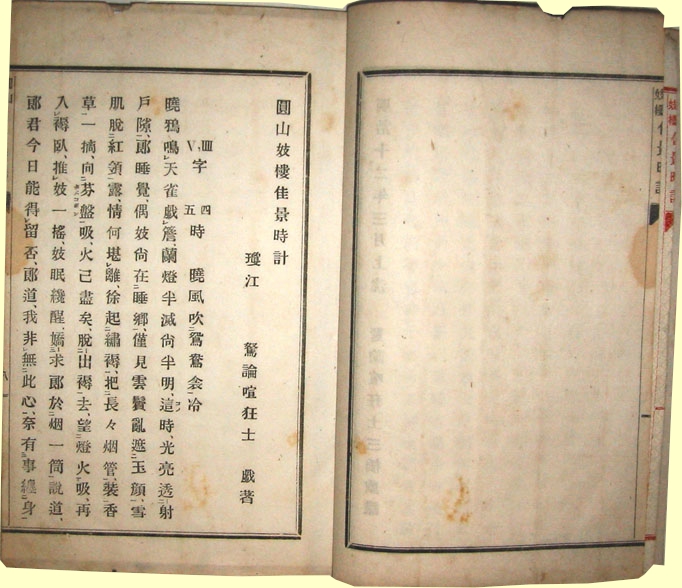 妓樓佳景時計
妓樓佳景時計
圓山妓樓佳景時計
瓊江 駑論喧狂士 戯著
IIII、V字 四五時 曉風吹鴛鴦衾冷
曉鴉鳴天雀戲簷、蘭燈半滅尚半明、這時、光亮透射
戶隙、郞睡覺、偶妓尙在睡鄕、僅見雲鬢亂遮玉顏、雪
肌脫紅領露、情何堪離、徐起繡褥、把長々烟管、裝香
草一摘、向芬盤吸、火已盡矣、脫出褥去、望燈火吸、再
入褥臥、推妓一搖、妓眠纔醒、嬌求郞於烟一筒說道、
郞君今日能得留否、郞道、我非無此心、奈有事纏身